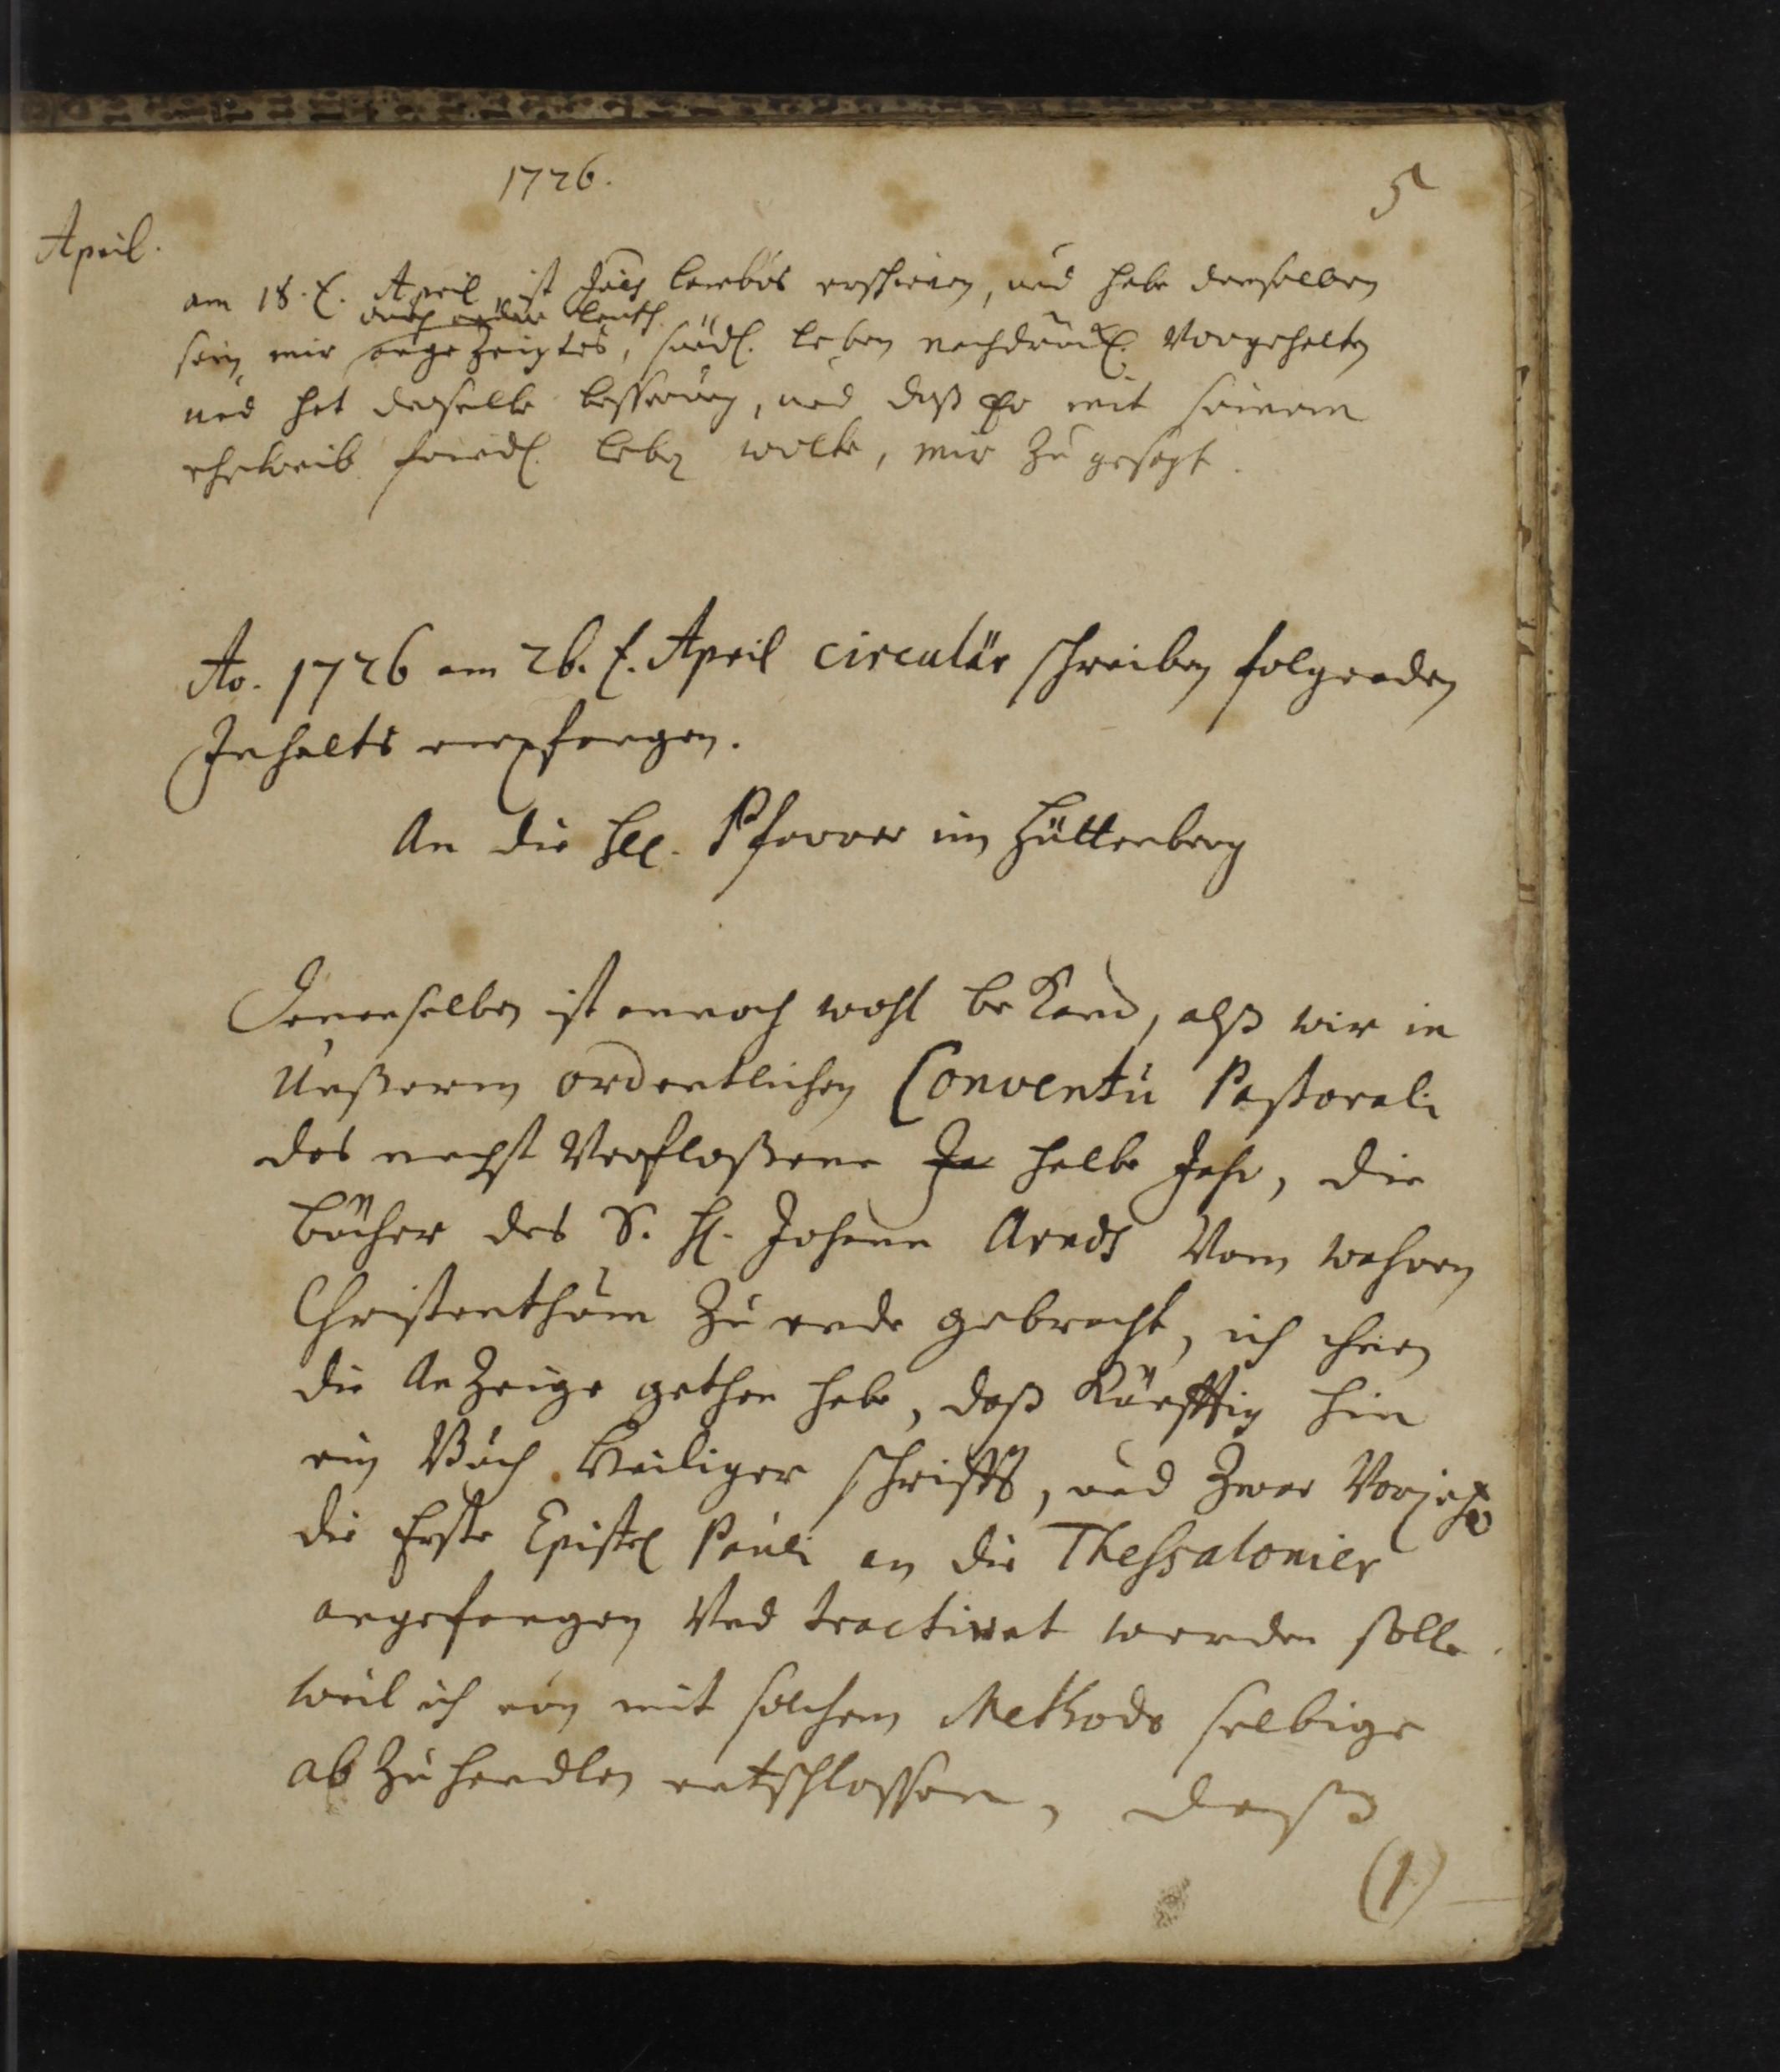 1726.
5
April.
am 18. t. April ist Joh lambös erschienen, und habe demselben
durch andere leuth
sein mir angezeigtes, sündl. leben nachdrückl. Vorgehalten
und hat derselbe besserung, und daß Er mit seinem
eheweib friedl. leben wolte, mir zu gesagt.
Ao. 1726 am 26. t. April circulär schreiben folgenden
Inhalts empfangen.
An die HEE. Pfarrer im Hüttenberg
Denenselben ist annoch wohl bekand, alß wir in
Unßerem ordentlichen Conventu Pastorali
das nechst Verfloßene Ja halbe Jahr, die
bücher des S. H. Johann Arndts Vom wahren
Christenthum zu ende gebracht, ich ihnen
die Anzeige gethan habe, daß Künfftig hin
ein Buch Heiliger schrifft, und zwar Vorjetzo
die Erste Epistel Pauli an die Thessalonier
angefangen Und tractiret werden solle
weil ich nun mit solchem Methodo selbige
abzuhandlen entschlossen, daß
(1)